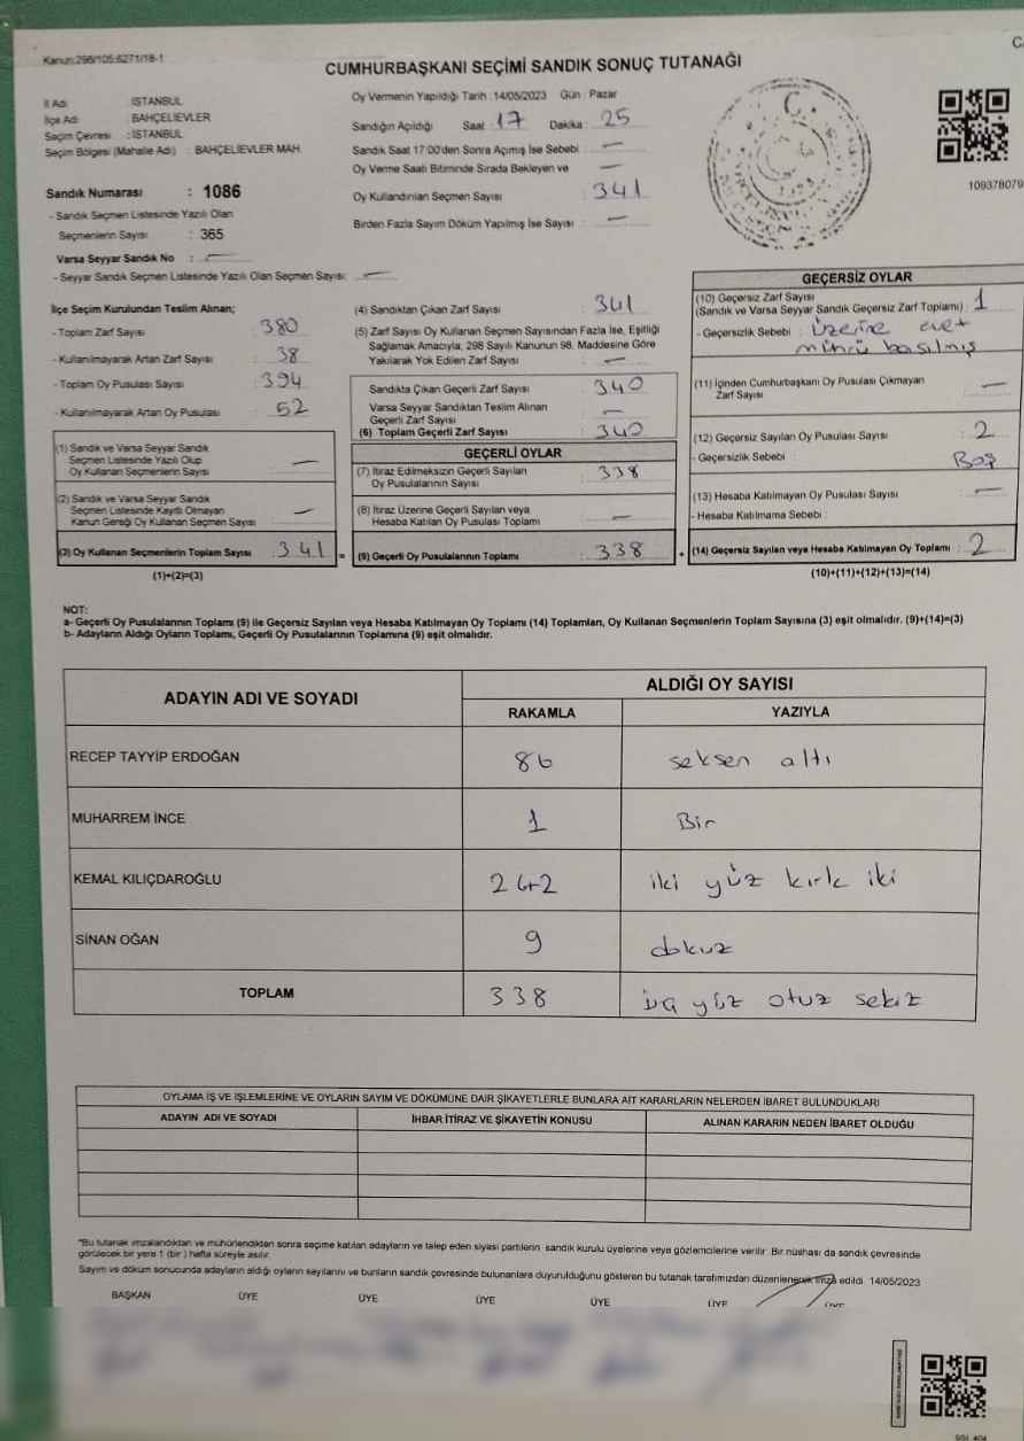 Kanun:298/105:6271/18-1
CUMHURBAŞKANI SEÇİMİ SANDIK SONUÇ TUTANAĞI
İl Adı : İSTANBUL
İlçe Adı : BAHÇELİEVLER
Seçim Çevresi : İSTANBUL
Seçim Bölgesi (Mahalle Adı) : BAHÇELİEVLER MAH.
Sandık Numarası : 1086
- Sandık Seçmen Listesinde Yazılı Olan
Seçmenlerin Sayısı : 365
Varsa Seyyar Sandık No : —
- Seyyar Sandık Seçmen Listesinde Yazılı Olan Seçmen Sayısı: —
Oy Vermenin Yapıldığı Tarih :14/05/2023 Gün : Pazar
Sandığın Açıldığı Saat : 17 Dakika : 25
Sandık Saat 17:00'den Sonra Açımış İse Sebebi : —
Oy Verme Saati Bitiminde Sırada Bekleyen ve —
Oy Kullandırılan Seçmen Sayısı : 341
Birden Fazla Sayım Döküm Yapılmış İse Sayısı : —
109378079
İlçe Seçim Kurulundan Teslim Alınan;
- Toplam Zarf Sayısı : 380
- Kullanılmayarak Artan Zarf Sayısı : 38
- Toplam Oy Pusulası Sayısı : 394
- Kullanılmayarak Artan Oy Pusulası : 52
(1) Sandık ve Varsa Seyyar Sandık
Seçmen Listesinde Yazılı Olup
Oy Kullanan Seçmenlerin Sayısı —
(2) Sandık ve Varsa Seyyar Sandık
Seçmen Listesinde Kayıtlı Olmayan
Kanun Gereği Oy Kullanan Seçmen Sayısı —
(3) Oy Kullanan Seçmenlerin Toplam Sayısı : 341
(1)+(2)=(3)
(4) Sandıktan Çıkan Zarf Sayısı : 341
(5) Zarf Sayısı Oy Kullanan Seçmen Sayısından Fazla İse, Eşitliği
Sağlamak Amacıyla, 298 Sayılı Kanunun 98. Maddesine Göre
Yakılarak Yok Edilen Zarf Sayısı : —
Sandıkta Çıkan Geçerli Zarf Sayısı : 340
Varsa Seyyar Sandıktan Teslim Alınan
Geçerli Zarf Sayısı : —
(6) Toplam Geçerli Zarf Sayısı : 340
GEÇERLİ OYLAR
(7) İtiraz Edilmeksizin Geçerli Sayılan
Oy Pusulalarının Sayısı : 338
(8) İtiraz Üzerine Geçerli Sayılan veya
Hesaba Katılan Oy Pusulası Toplamı : —
= (9) Geçerli Oy Pusulalarının Toplamı : 338
GEÇERSİZ OYLAR
(10) Geçersiz Zarf Sayısı
(Sandık ve Varsa Seyyar Sandık Geçersiz Zarf Toplamı) : 1
- Geçersizlik Sebebi : Üzerine evet
mührü basılmış
(11) İçinden Cumhurbaşkanı Oy Pusulası Çıkmayan
Zarf Sayısı : —
(12) Geçersiz Sayılan Oy Pusulası Sayısı : 2
- Geçersizlik Sebebi : Boş
(13) Hesaba Katılmayan Oy Pusulası Sayısı : —
- Hesaba Katılmama Sebebi :
+ (14) Geçersiz Sayılan veya Hesaba Katılmayan Oy Toplamı : 2
(10)+(11)+(12)+(13)=(14)
NOT:
a- Geçerli Oy Pusulalarının Toplamı (9) ile Geçersiz Sayılan veya Hesaba Katılmayan Oy Toplamı (14) Toplamları, Oy Kullanan Seçmenlerin Toplam Sayısına (3) eşit olmalıdır. (9)+(14)=(3)
b- Adayların Aldığı Oyların Toplamı, Geçerli Oy Pusulalarının Toplamına (9) eşit olmalıdır.
ADAYIN ADI VE SOYADI
ALDIĞI OY SAYISI
RAKAMLA YAZIYLA
RECEP TAYYİP ERDOĞAN 86 seksen altı
MUHARREM İNCE 1 Bir
KEMAL KILIÇDAROĞLU 242 iki yüz kırk iki
SİNAN OĞAN 9 dokuz
TOPLAM 338 üç yüz otuz sekiz
OYLAMA İŞ VE İŞLEMLERİNE VE OYLARIN SAYIM VE DÖKÜMÜNE DAİR ŞİKAYETLERLE BUNLARA AİT KARARLARIN NELERDEN İBARET BULUNDUKLARI
ADAYIN ADI VE SOYADI İHBAR İTİRAZ VE ŞİKAYETİN KONUSU ALINAN KARARIN NEDEN İBARET OLDUĞU
*Bu tutanak imzalandıktan ve mühürlendikten sonra seçime katılan adayların ve talep eden siyasi partilerin sandık kurulu üyelerine veya gözlemcilerine verilir. Bir nüshası da sandık çevresinde
görülecek bir yere 1 (bir) hafta süreyle asılır.
Sayım ve döküm sonucunda adayların aldığı oyların sayılarını ve bunların sandık çevresinde bulunanlara duyurulduğunu gösteren bu tutanak tarafımızdan düzenlenerek imza edildi. 14/05/2023
BAŞKAN ÜYE ÜYE ÜYE ÜYE ÜYE ÜYE